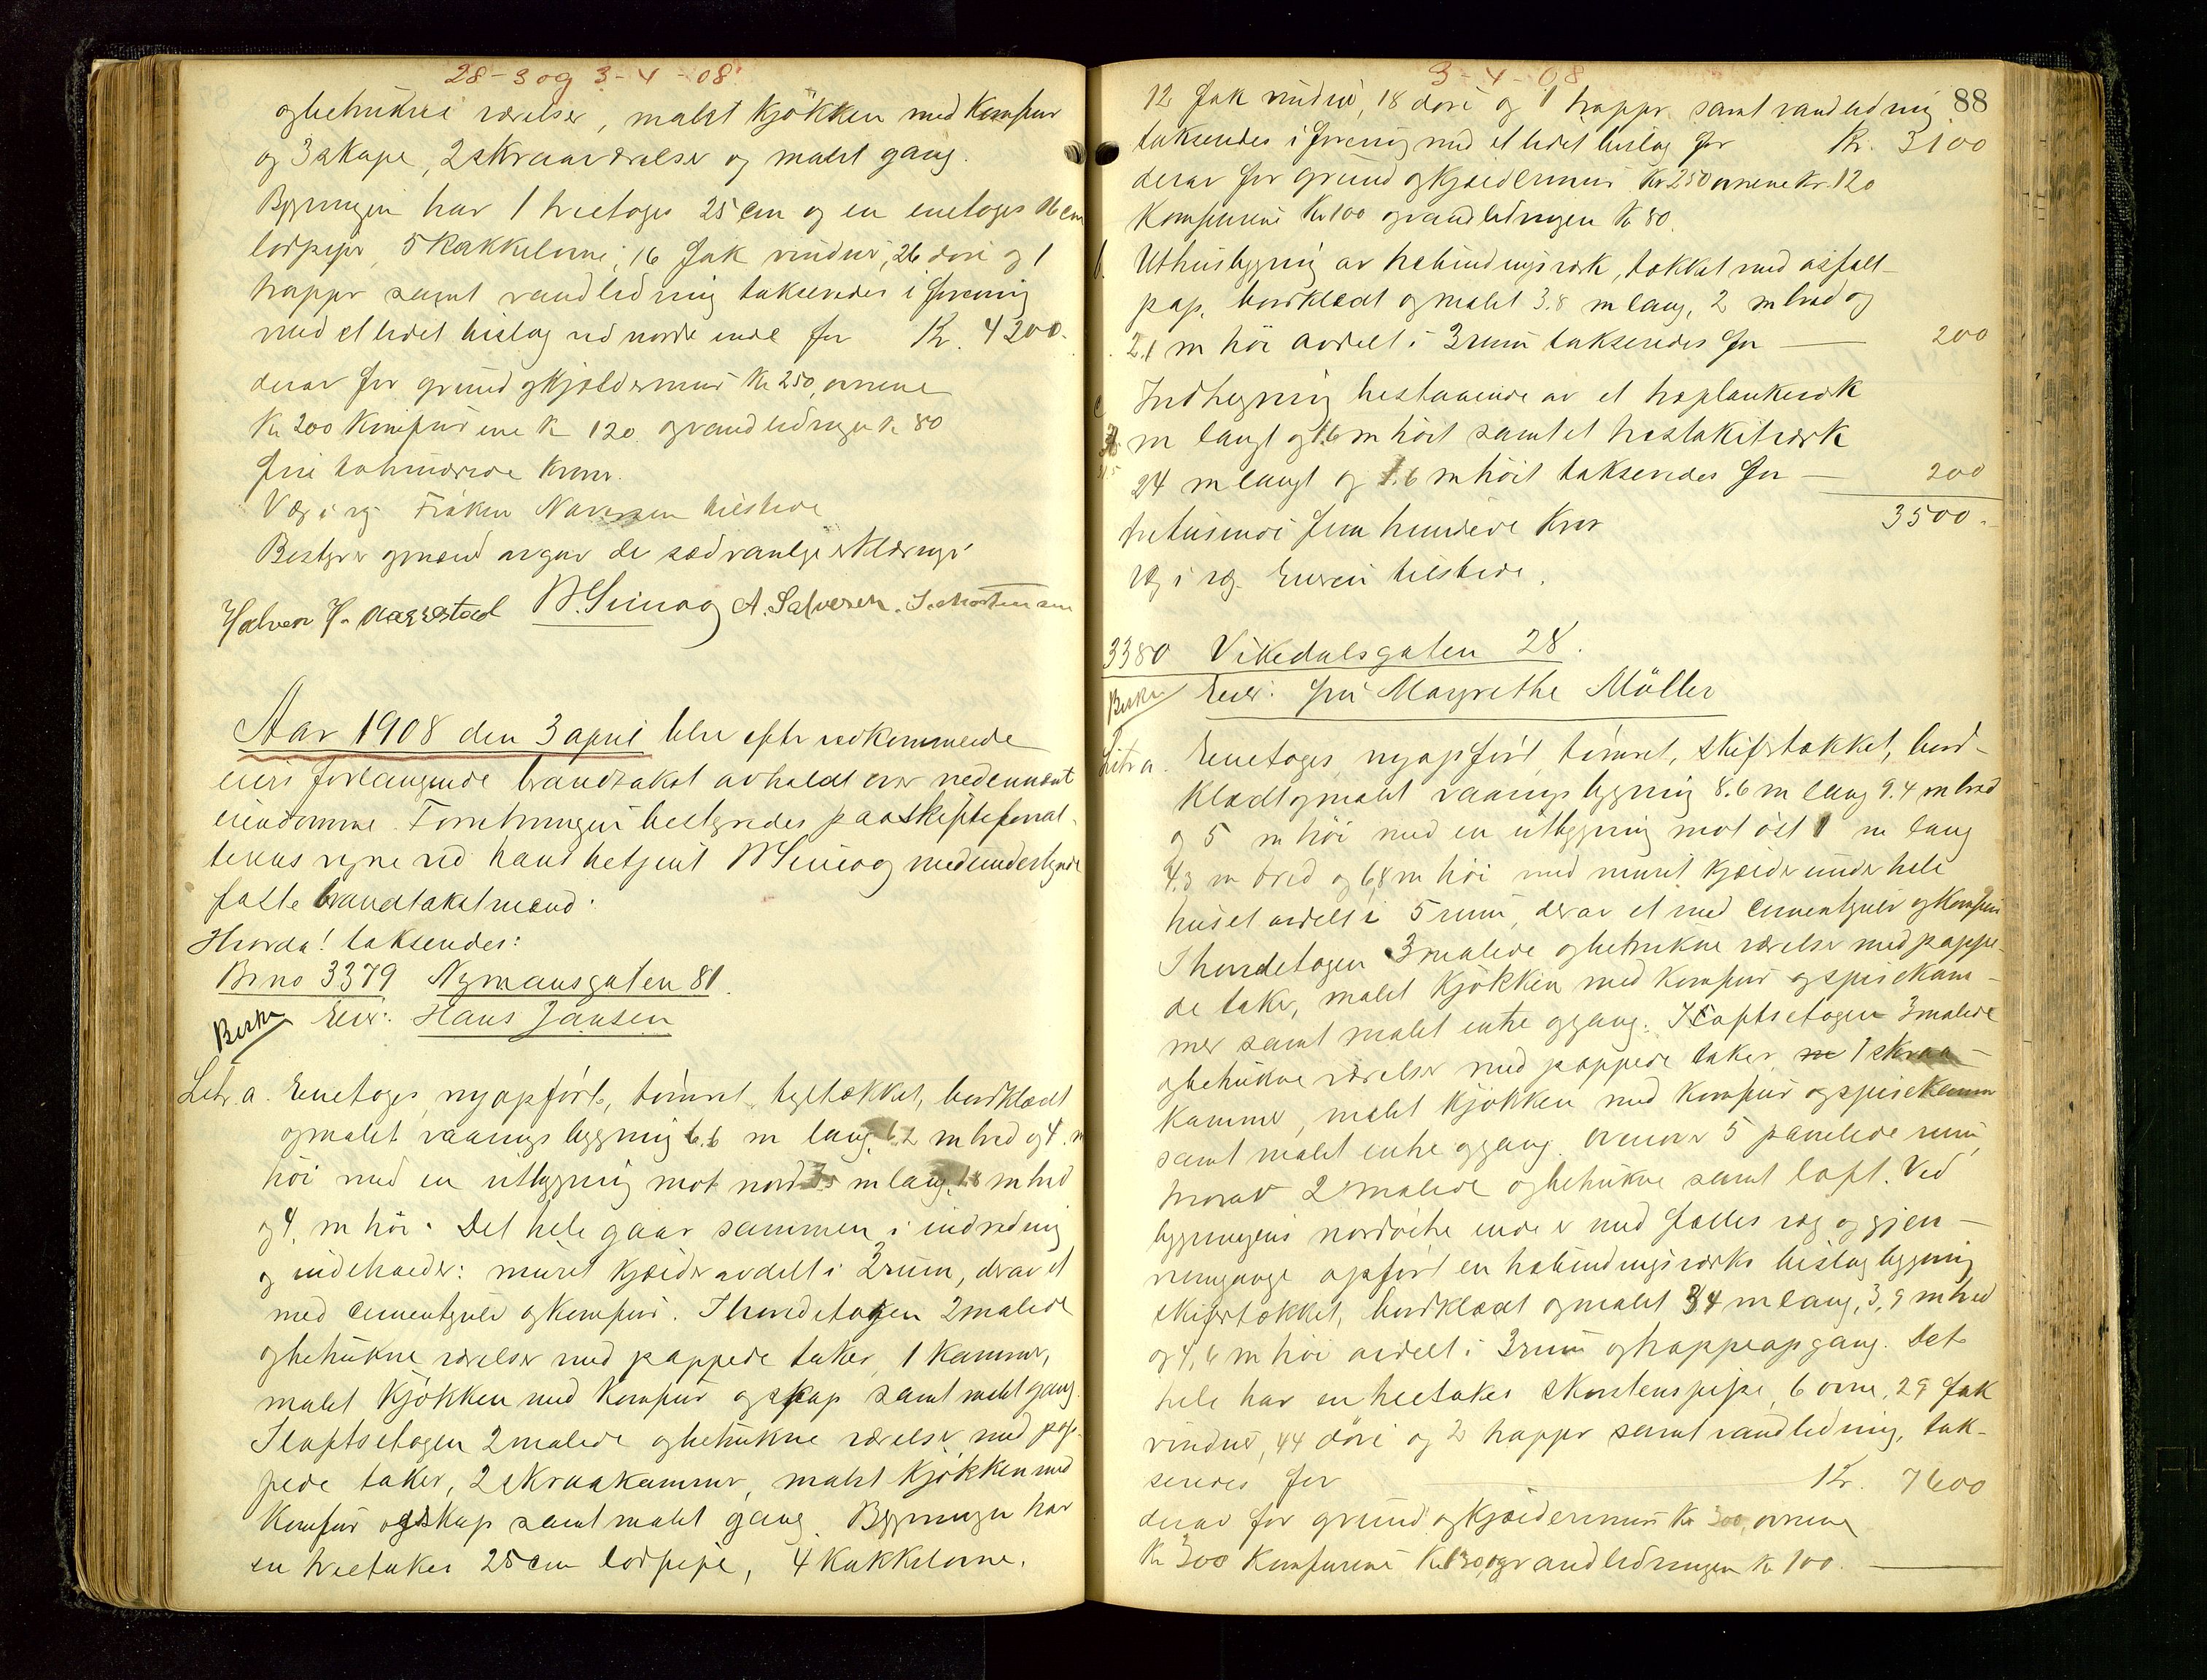 28-3 og 3-4-08
og betrukne værelser, malet kjøkken med komfur
og 3 skape, 2 skraaværelser og malet gang.
Bygningen har 1 treetages 25 cm og en enetages 16 cm
lodpiper, 5 kakkelovne, 16 fak vinduer, 26 døre og 1
trapper samt vandledning takseredes i forening
med et lidet bislag ved nordre ende for Kr. 4200.
derav for grund og kjældermur Kr 250, ovnene
Kr 200 Komfurene Kr 120 og vandledningen Kr 80
fire to hundrede kroner.
Væg i væg Frøken tilstede
Bestyrer og mænd avgav de sædvanlige erklæringer
Halvor H. Aarrestad A. Salvesen. I. Mortensen
Aar 1908 den 3 april blev efter vedkommende
eieres forlangende brandtakst avholdt over nedennævnte
eiendomme. Forretningen bestyredes paa skifteforval-
terens vegne ved hans betjent og medunderskrevne
faste brandtakstmænd:
Hvorda! takseredes:
Br no 3379 Nymansgaten 81.
Besikt Eier: Hans Jansen
Litr. a. Enetages, nyopført, tømret, tegltækket, bordklædt
og malet vaaningsbygning 6.6 m lang 6.2 m bred og 4 m
høi med en utbygning mot nord m lang, 1.8 m bred
og 4, m høi. Det hele gaar sammen i indredning
og indeholder: muret kjælder avdelt i 2 rum, derav et
med cementgulv og komfur. I hovedetagen 2 malede
og betrukne værelser med pappede taker, 1 kammer,
malet kjøkken med komfur og skap samt malet gang.
I loftsetagen 2 malede og betrukne værelser med pap-
pede taker, 2 skraakammer, malet kjøkken med
komfur og skap samt malet gang. Bygningen har
en treetakes 25 cm lodpipe, 4 kakkelovne,
3-4-08
88
12 fak vinduer, 18 døre og 1 trapper samt vandledning
takseredes i forening med et lidet bislag for Kr. 3100
derav for grund og kjældermur Kr 250 ovnene Kr. 120
Komfurene Kr 100 og vandledningen Kr 80.
b. Uthusbygning av trebindingsverk, tækket med asfalt-
pap, bordklædt og malet 3.8 m lang, 2 m bred og
2.1 m høi avdelt i 3 rum takseredes for — 200
c Indhegning bestaaende av et træplankeverk
m langt og 1.6 m høit samt et træstakitværk
24 m langt og 1.6 m høit takseredes for — 200
tretusinde fem hundrede kroner 3500.
Væg i væg. Eieren tilstede.
3380 Vikedalsgaten 28.
Besikt Eier: fru Margrethe Müller
Litr a. Enetages, nyopført, tømret, skifertækket, bord-
klædt og malet vaaningsbygning 8.6 m lang 9.4 m bred
og 5 m høi med en utbygning mot øst 1 m lang
4.3 m bred og 6,8 m høi med muret kjælder under hele
huset avdelt i 5 rum, derav et med cementgulv og komfur
I hovedetagen 3 malede og betrukne værelser med pappe-
de taker, malet kjøkken med komfur og spisekam-
mer samt malet entre og gang. I loftsetagen 3 malede
og betrukne værelser med pappede taker, 1 skraa-
kammer, malet kjøkken med komfur og spisekammer
samt malet entre og gang. ovenover 5 panelede rum,
hvorav 2 malede og betrukne samt loft. Ved
bygningens nordøstre ende er med fælles væg og gjen-
nemgange opført en trebindingsverks bislagbygning
skifertækket, bordklædt og malet 3.4 m lang, 3,9 m bred
og 4,6 m høi avdelt i 3 rum og trappeopgang. Det
hele har en treetakes skorstenspipe, 6 ovne, 29 fak
vinduer, 44 døre og 2 trapper samt vandledning, tak-
seredes for Kr. 7600
derav for grund og kjældermur Kr 300, ovnene
Kr 300 Komfurene Kr 130, og vandledningen Kr 100.